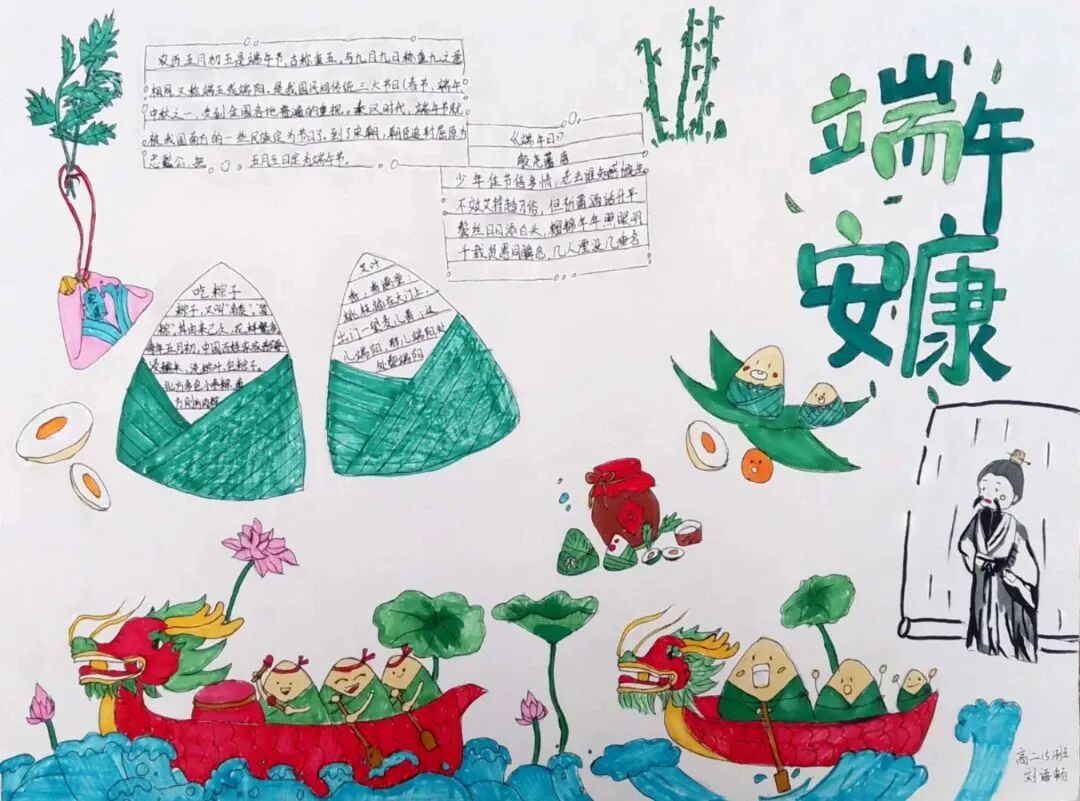 农历五月初五是端午节,古称重五,与九月九日称重九之意
相同,又称端五或端阳。是我国民间传统三大节日(春节、端午
中秋之一,受到全国各地普遍的重视。秦汉时代,端午节就
被我国南方的一些民族定为节日了。到了宋朝,朝廷追封屈原为
忠烈公,把 五月五日定为端午节。
《端午日》
殷尧藩 唐
少年佳节倍多情,老去谁知感慨生
不效艾符趋习俗,但祈蒲酒话升平
鬓丝日日添白头,榴锦年年照眼明
千载贤愚同瞬息,几人湮没几垂名
端午
安康
吃粽子
粽子,又叫"角黍"、"筒
粽",其由来已久,花样繁多
每年五月初,中国百姓家家都要
浸糯米、洗粽叶、包粽子。
北方多包小枣粽,南
方则肉粽
艾叶
香,香满堂;
桃枝插在大门上,
出门一望麦儿黄;这
儿端阳,那儿端阳处
处都端阳
高二15班
刘语畅